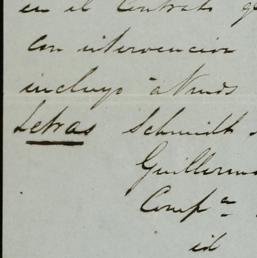 en el Contrato
con intervencion
incluyo
Letras Schmidt
Guillermo
Compª
id